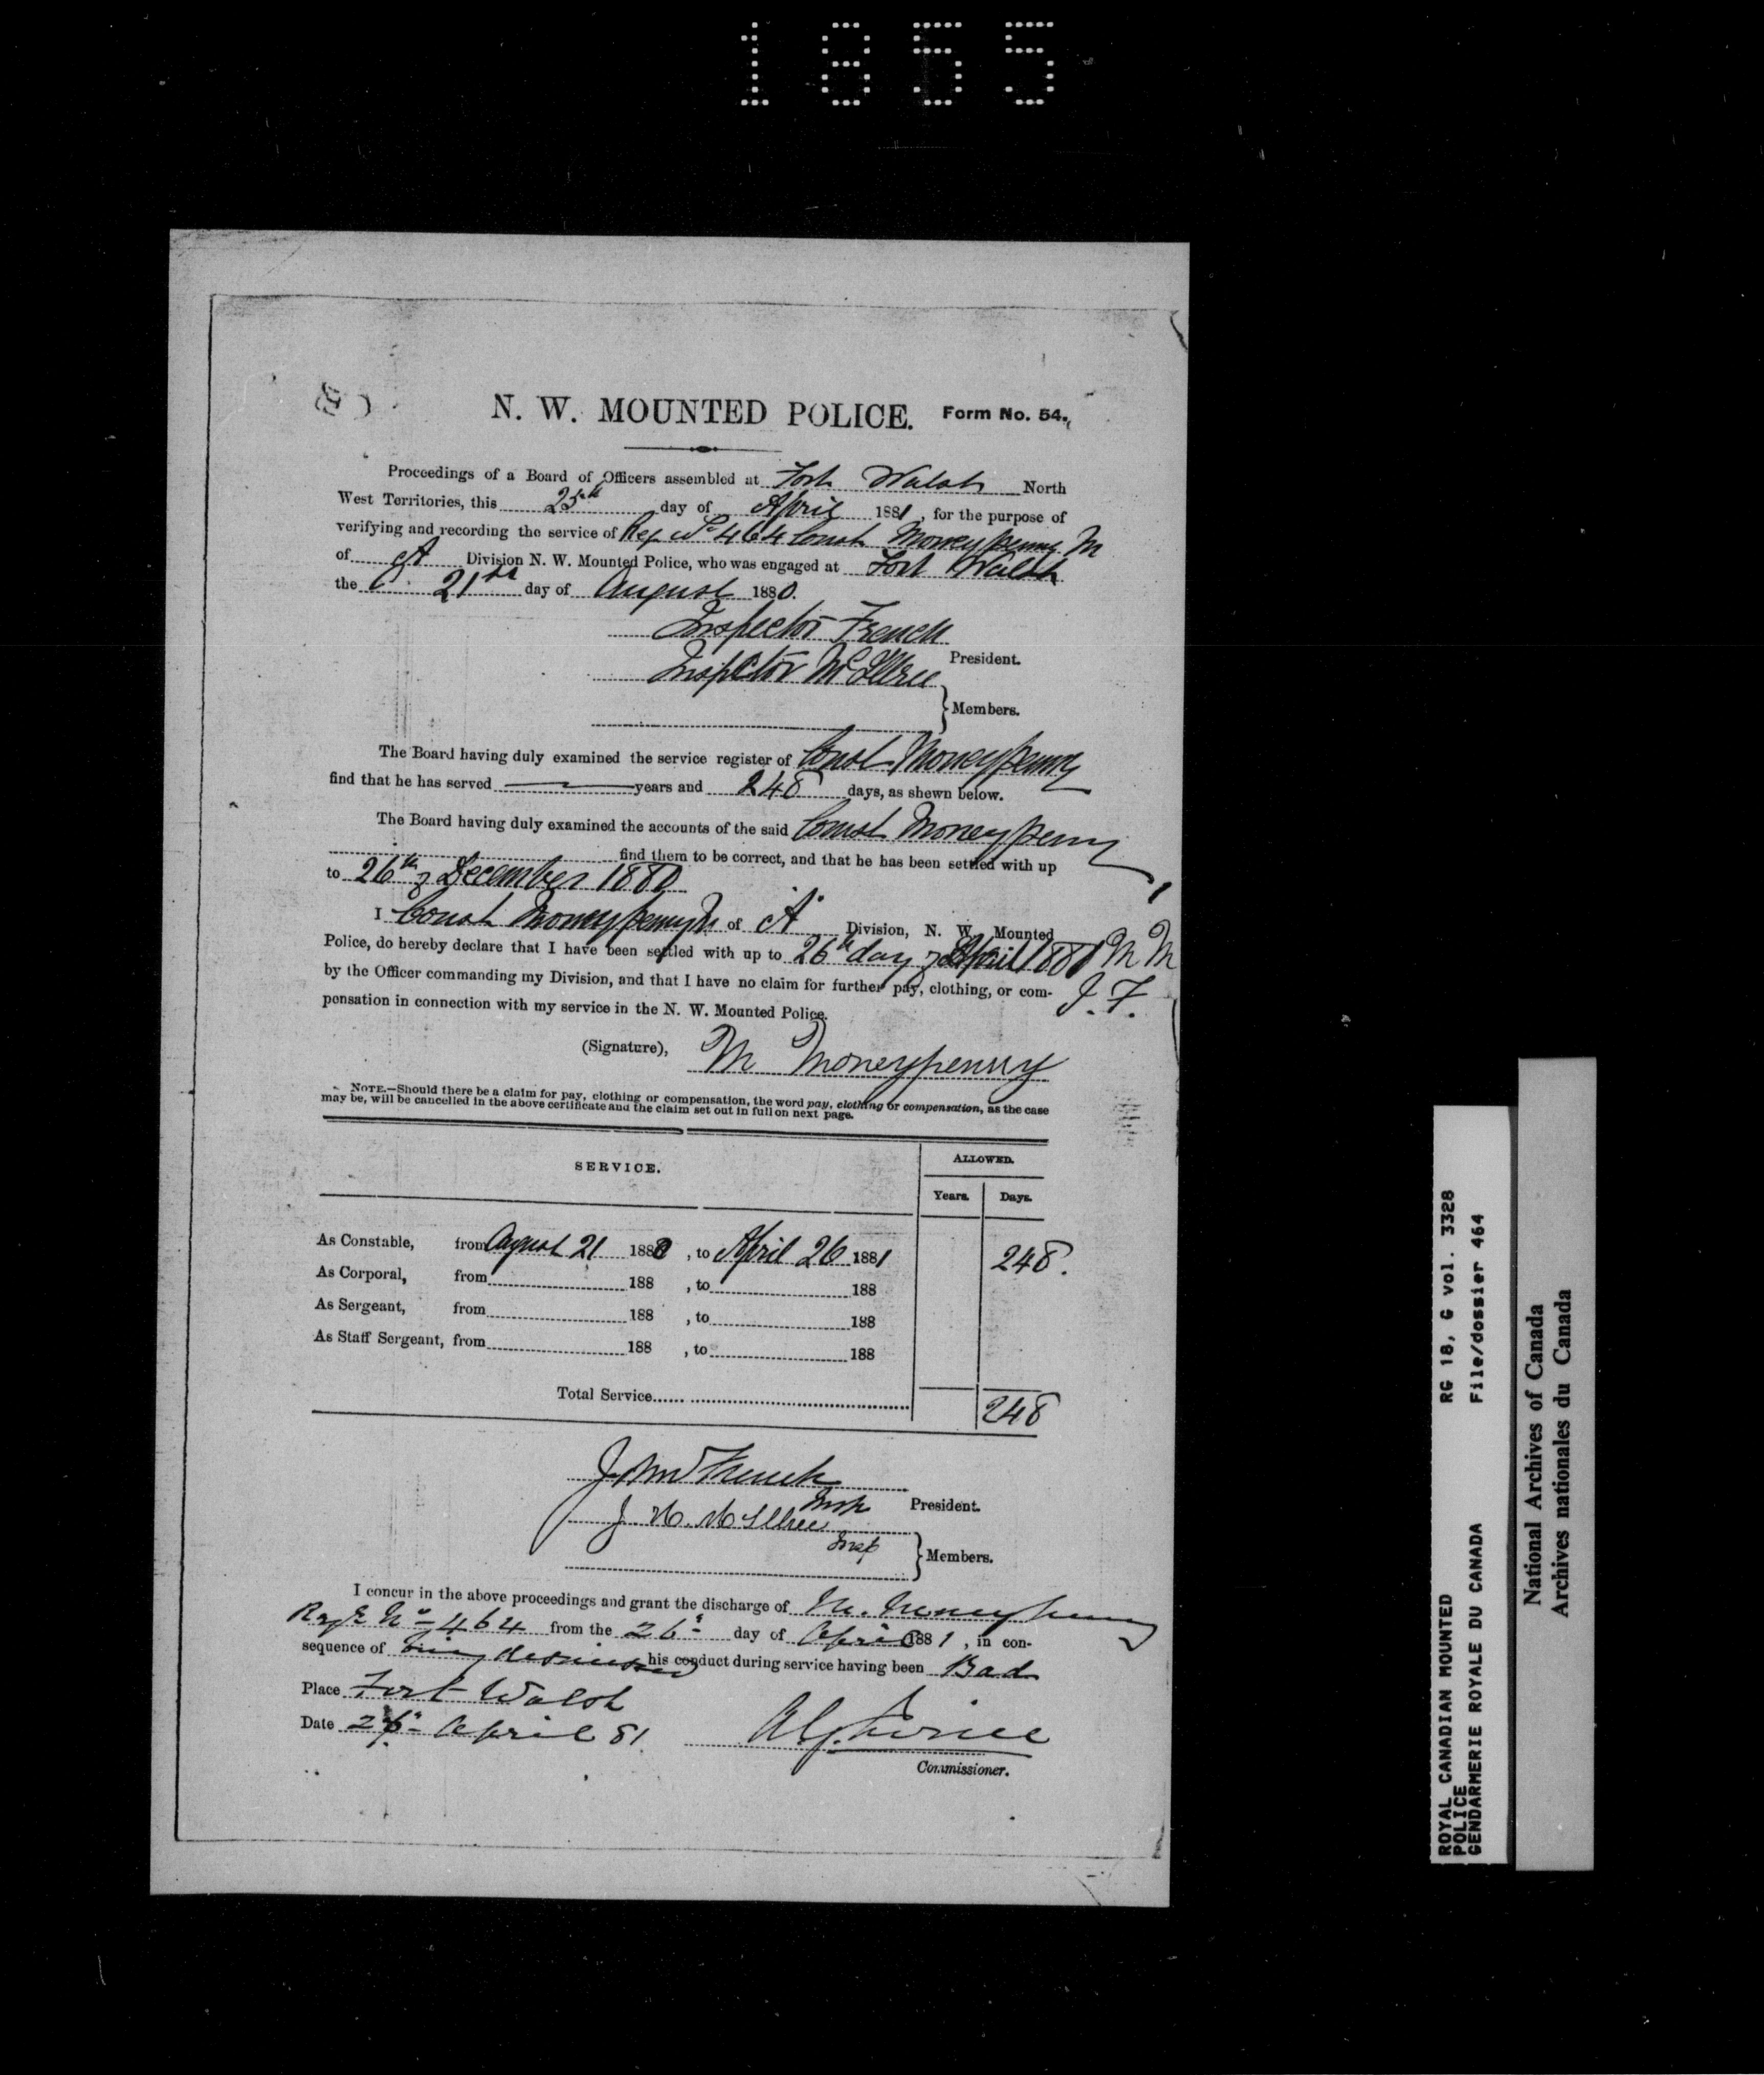 1855
N. W. MOUNTED POLICE. Form No. 54.
Proceedings of a Board of Officers assembled at Fort Walsh North
West Territories, this 25th day of April 1881, for the purpose of
verifying and recording the service of Reg No 464 Const Moneypenny M
of A Division N. W. Mounted Police, who was engaged at Fort Walsh
the 21st day of August 1880.
Inspector French
President.
Inspector McIllree
Members.
The Board having duly examined the service register of Const Moneypenny
find that he has served years and 248 days, as shewn below.
The Board having duly examined the accounts of the said Const Moneypenny
find them to be correct, and that he has been settled with up
to 26th December 1880
I Const Moneypenny M of A Division, N. W. Mounted
Police, do hereby declare that I have been settled with up to 26th day April 1881 M M
by the Officer commanding my Division, and that I have no claim for further pay, clothing, or com-
J. F.
pensation in connection with my service in the N. W. Mounted Police.
(Signature), M Moneypenny
NOTE.—Should there be a claim for pay, clothing or compensation, the word pay, clothing or compensation, as the case
may be, will be cancelled in the above certificate and the claim set out in full on next page.
SERVICE. ALLOWED.
Years. Days.
As Constable, from August 21 1880, to April 26 1881 248.
As Corporal, from 188 , to 188
As Sergeant, from 188 , to 188
As Staff Sergeant, from 188 , to 188
Total Service 248
John French
Insp President.
J H McIllree
Insp Members.
I concur in the above proceedings and grant the discharge of M. Moneypenny
Reg No 464 from the 26 day of April 1881, in con-
sequence of being dismissed his conduct during service having been Bad
Place Fort Walsh
Date April 81
A G Irvine
Commissioner.
ROYAL CANADIAN MOUNTED RG 18, G vol. 3328
POLICE
GENDARMERIE ROYALE DU CANADA File/dossier 464
National Archives of Canada
Archives nationales du Canada